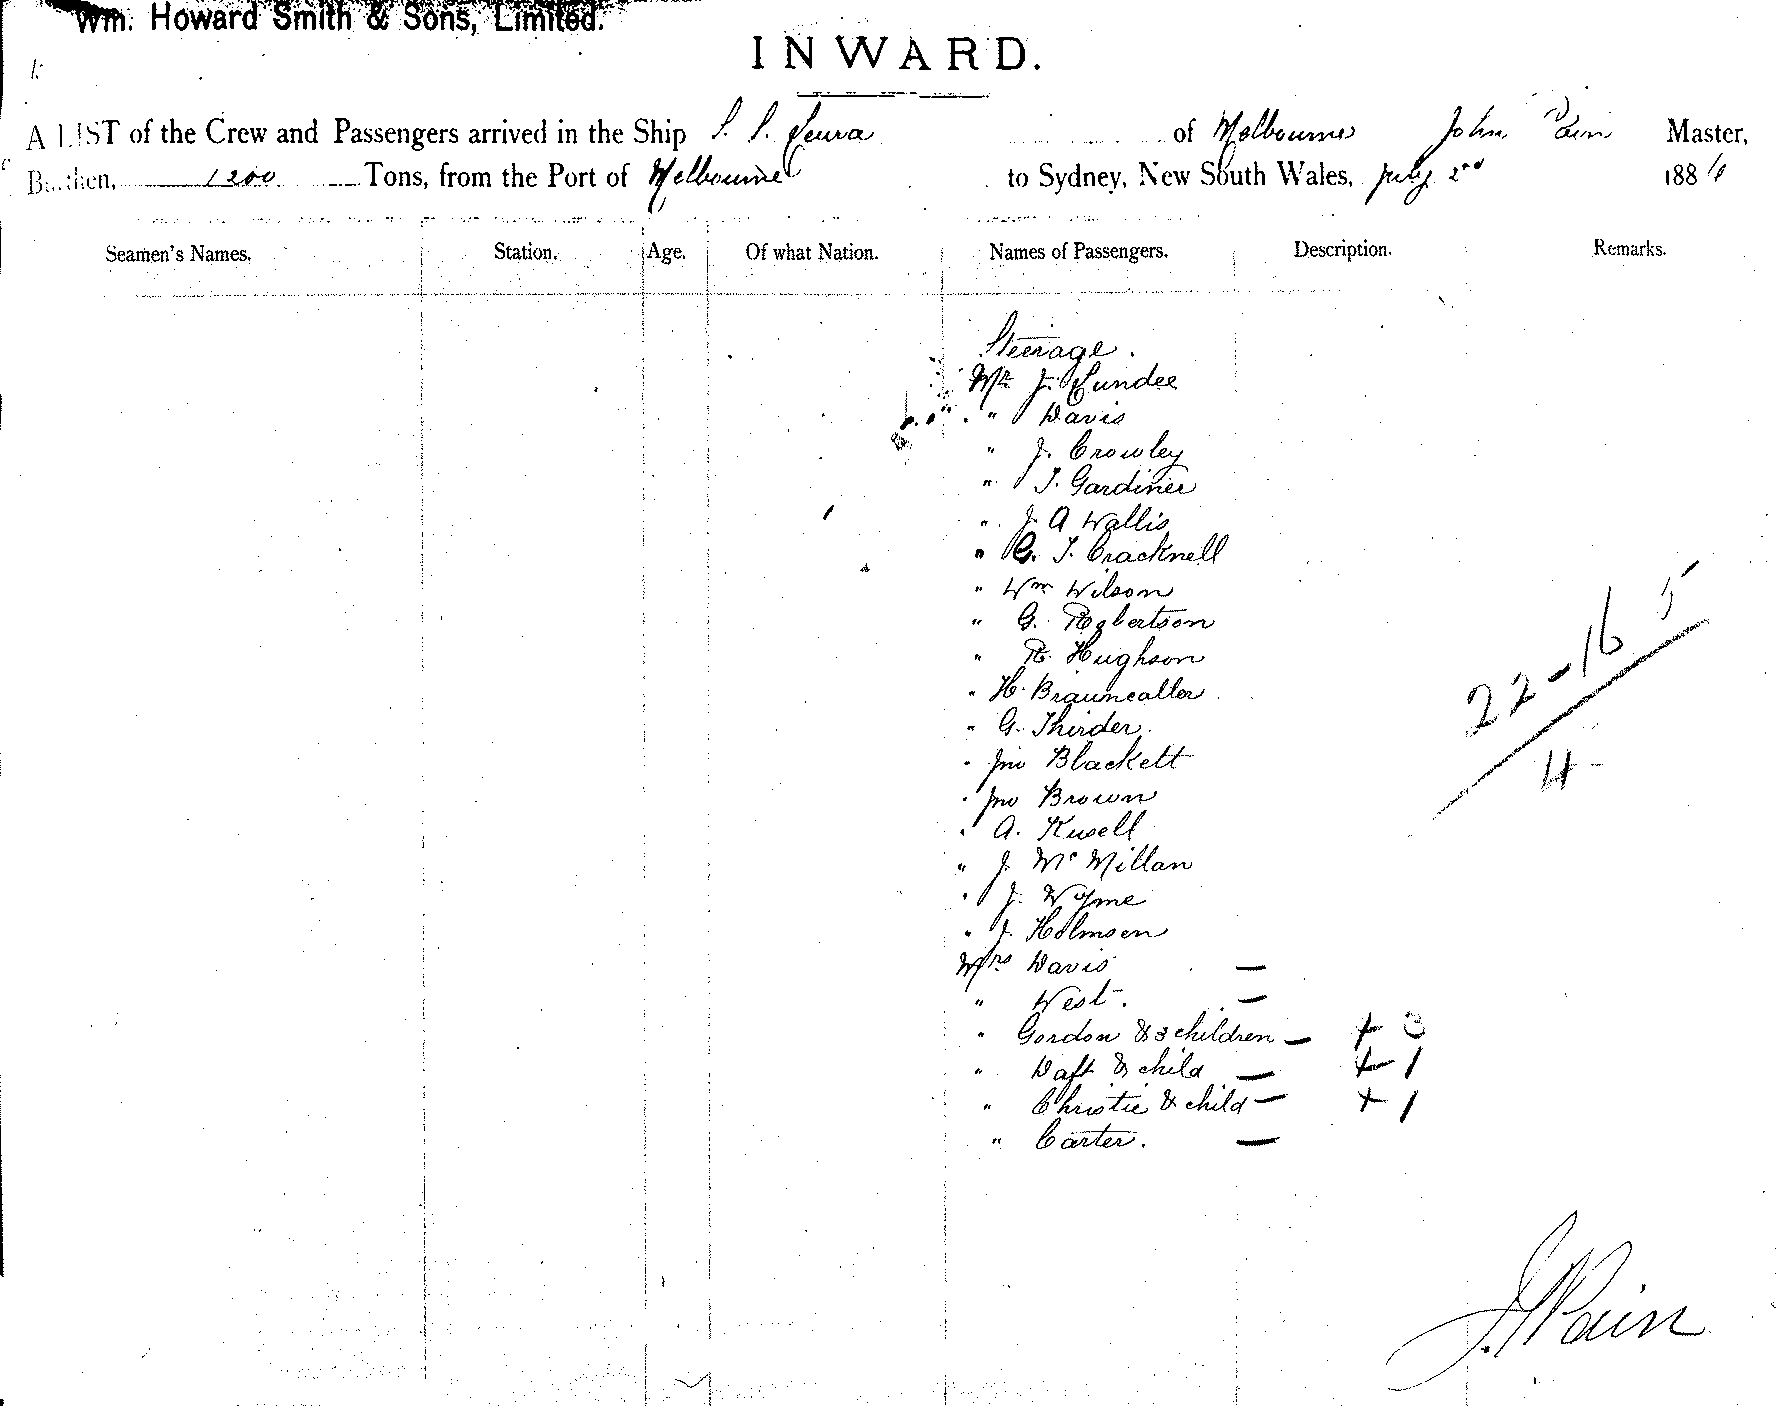 Wm. Howard Smith & Sons, Limited.
INWARD.
A LIST of the Crew and Passengers arrived in the Ship S. S. Leura of Melbourne John Pain Master,
Burthen, 1200 Tons, from the Port of Melbourne to Sydney, New South Wales, July 2nd 1886
Seamen's Names. Station. Age. Of what Nation. Names of Passengers. Description. Remarks.
Steerage.
Mr J. Lundee
" Davis
" J. Crowley
" T. Gardiner
" J. A Wallis
" G. T. Cracknell
" Wm Wilson
" G. Robertson
" R. Hughson
" H.
" G. Thirder.
" Jno Blackett
" Jno Brown
" A. Kusell
" J. McMillan
" J. Wyme
" J. Holmsen
Mrs Davis —
" West. —
" Gordon & 3 children — + 3
" Daft & child — + 1
" Christie & child — + 1
" Carter. —
22-16 5
4
J Pain